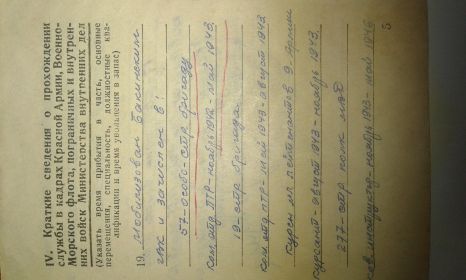 IV. Краткие сведения о прохождении
службы в кадрах Красной Армии, Военно-
Морского флота, пограничных и внутрен-
них войск Министерства внутренних дел
(Указать время прибытия в часть, основные
перемещения, специальность, должностные ква-
лификации и время увольнения в запас)
19. Мобилизован Бакинским
ГВК и зачислен в:
57-особо-стр бригаду
ком. отд. ПТР-ноябрь 1942-май 1943,
19-стр бригада
ком. отд. ПТР-май 1943-август 1943
курсы мл. лейтенантов 9. Армии
курсант-август 1943-ноябрь 1943,
277-стр полк
ноябрь 1943-май 1946
5